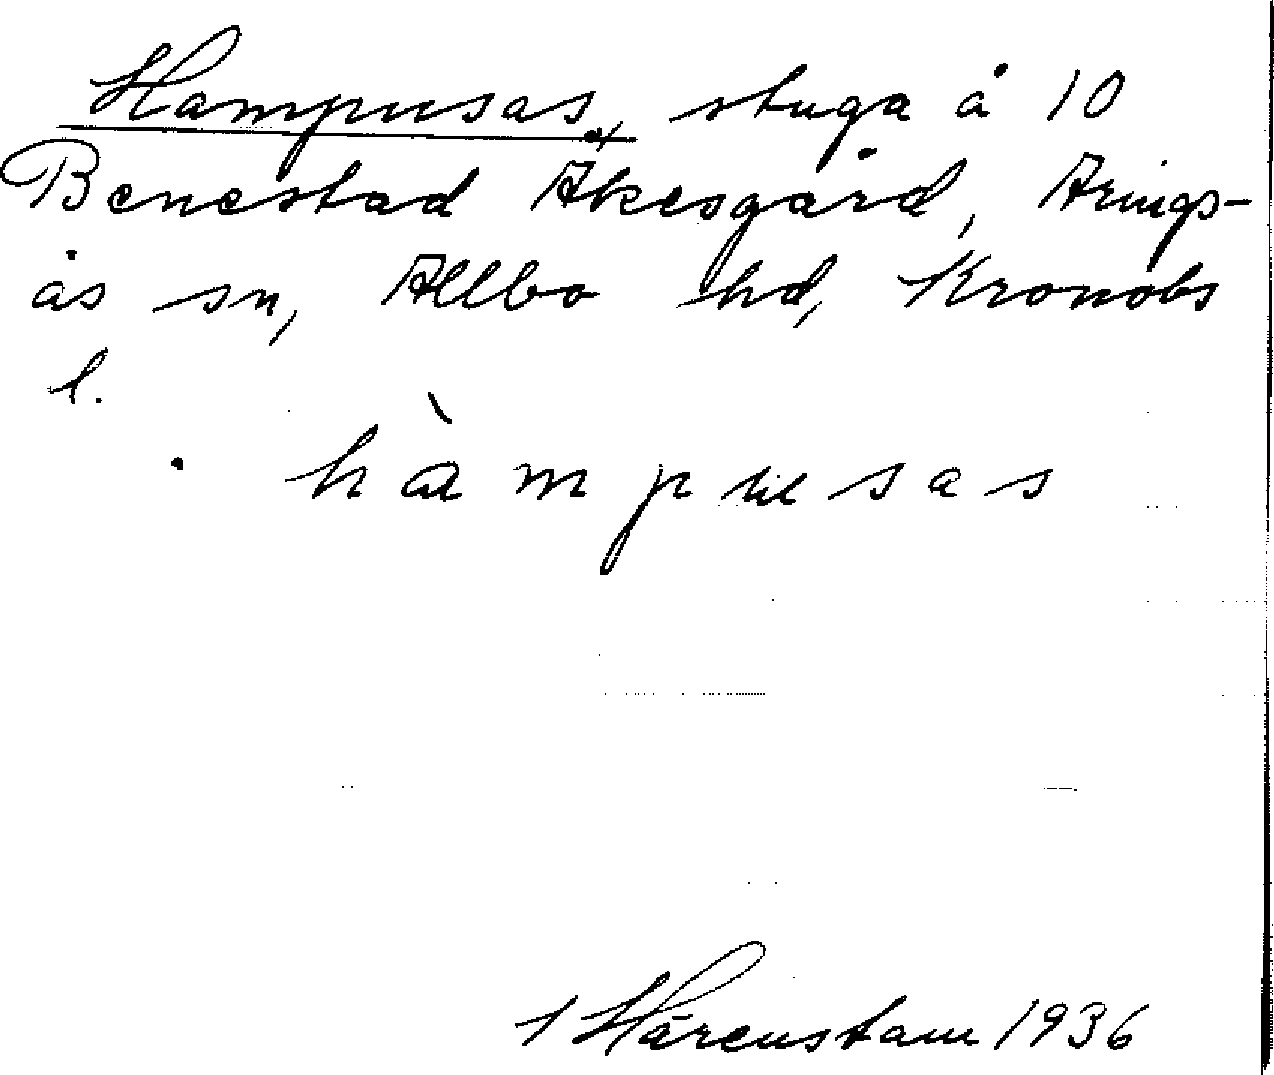 Hampusas, stuga å 10
Benestad Åkesgård, Arings-
ås sn, Allbo hd, Kronobs
l.
hàmpusas
1 Hårenstam 1936